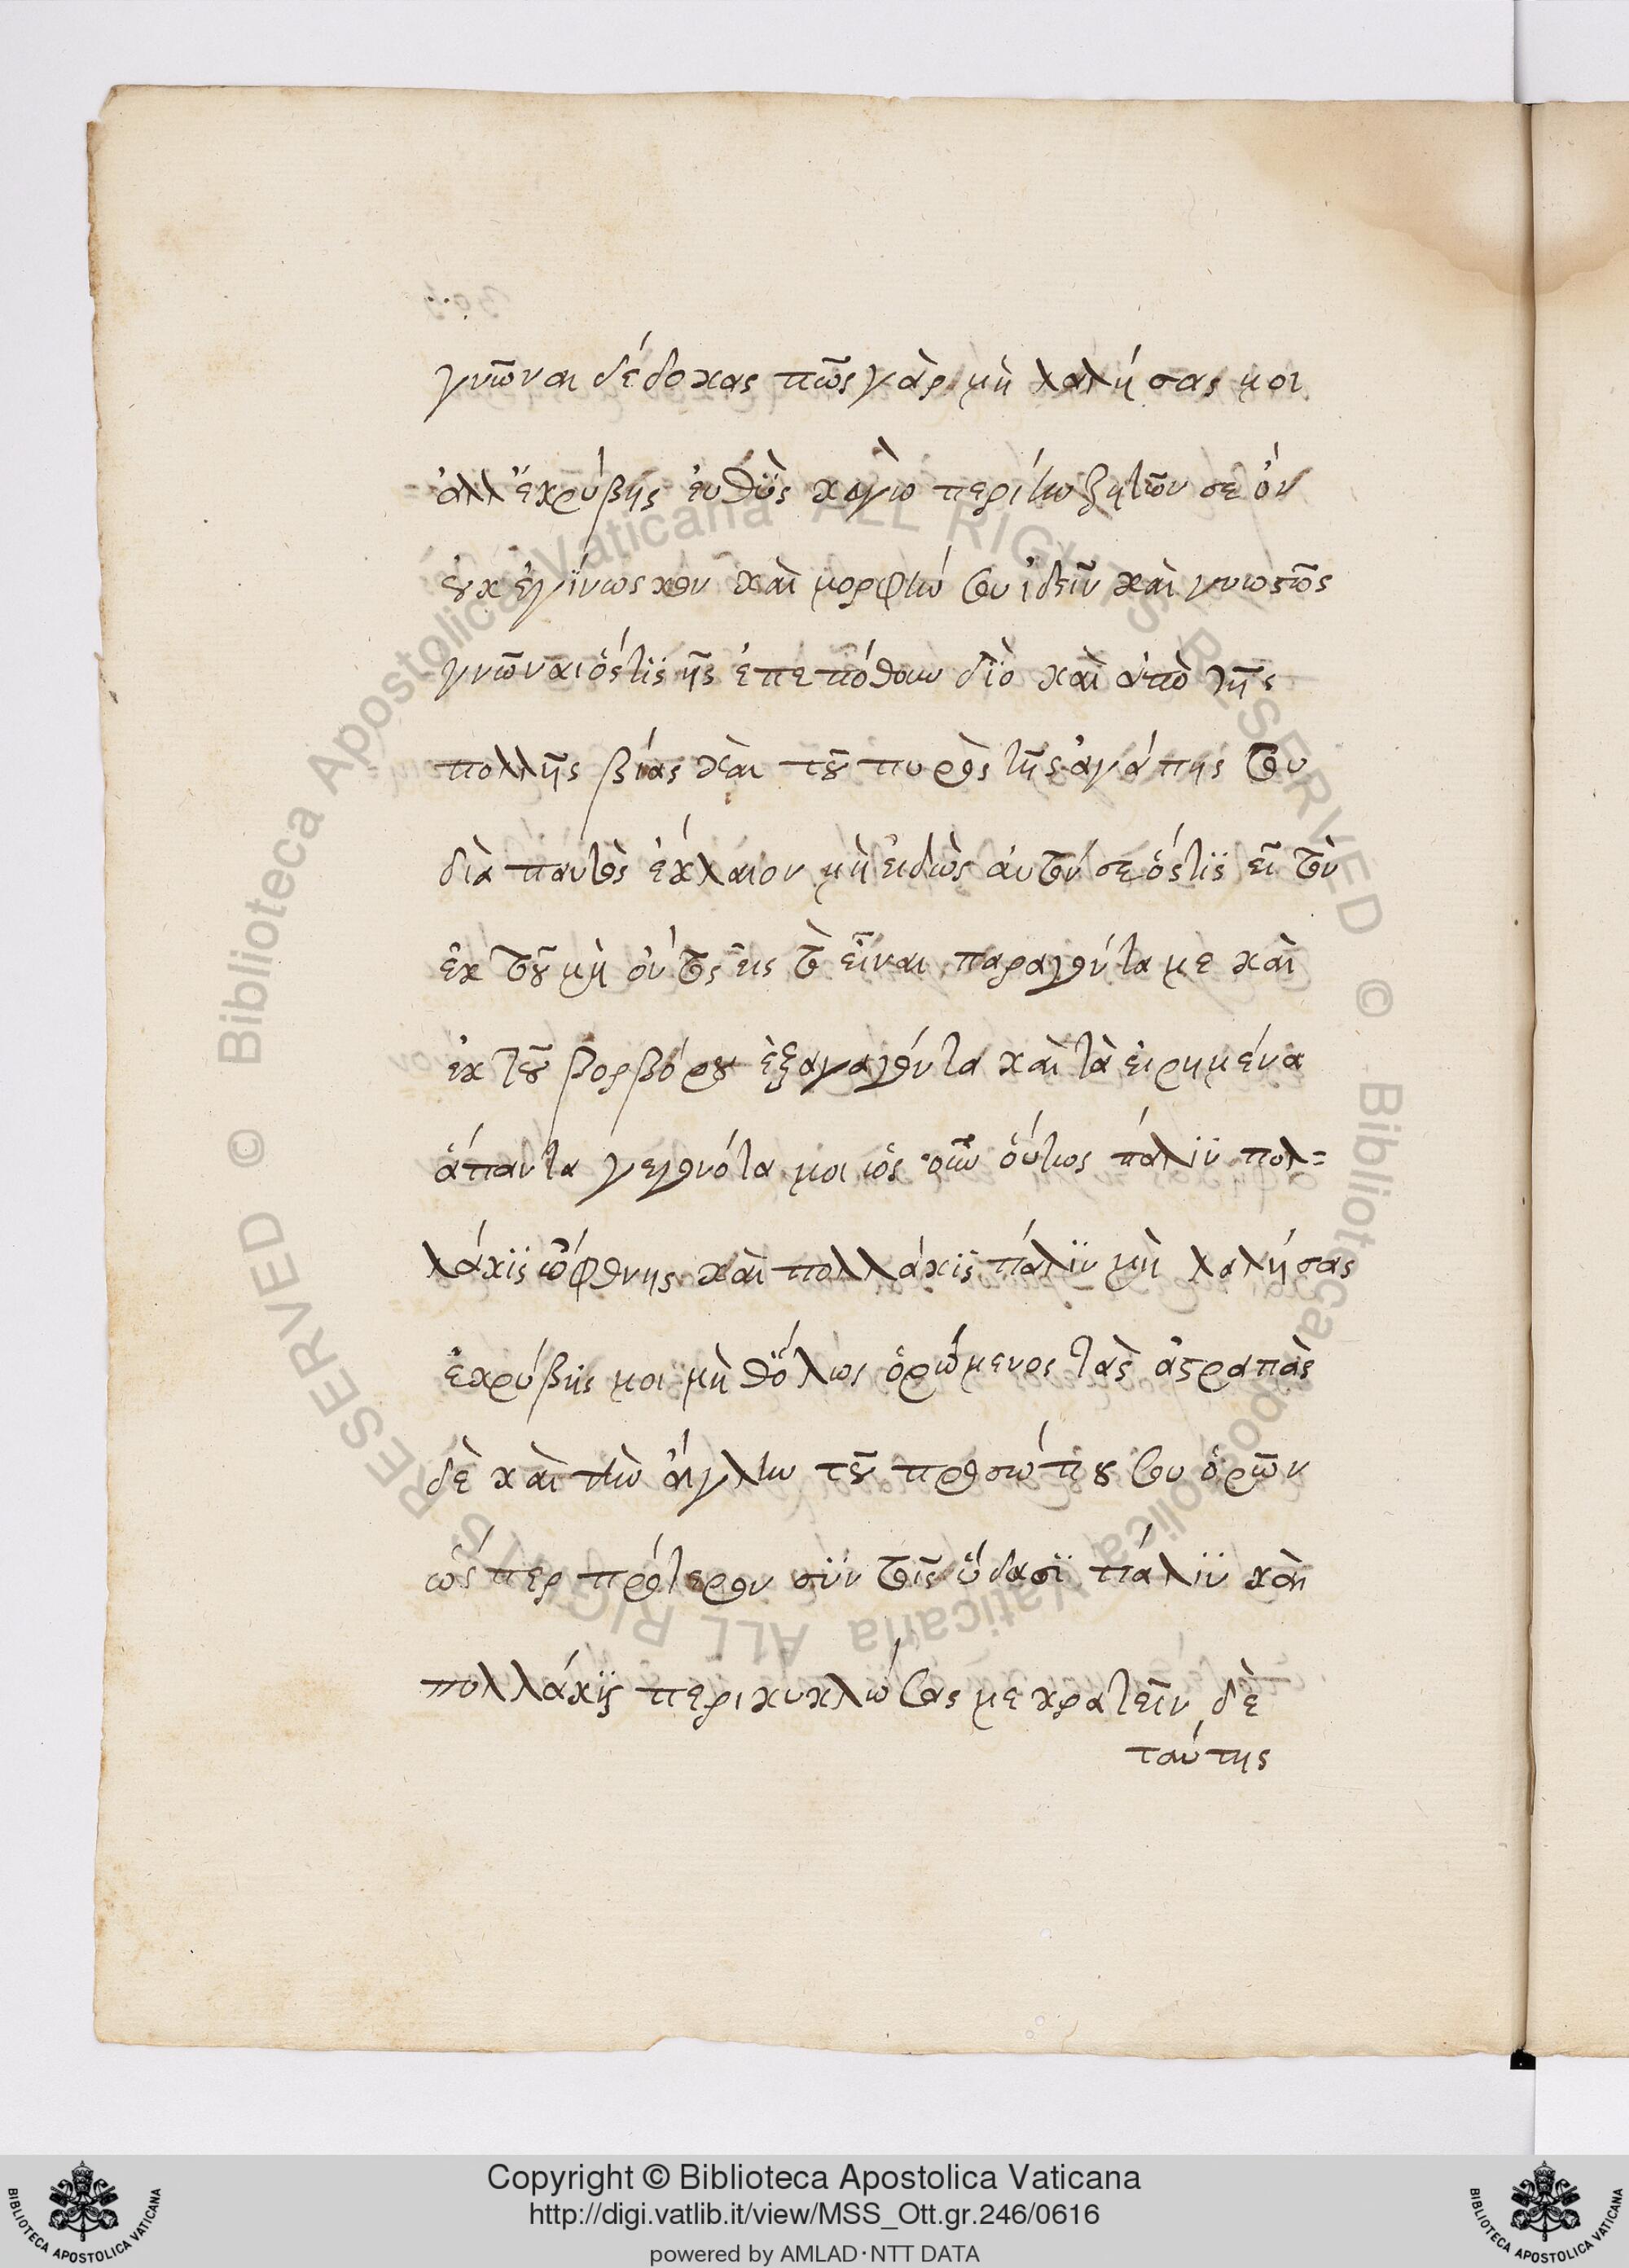 γνῶναι δέδοκας πῶς γὰρ μὴ λαλήσας μοι
ἀλλ' ἐκρύβης ἐυθὺς κἀγὼ περιήω ζητῶν σε ὃν
οὐκ ἐγίνωσκον καὶ μορφήν σου ἰδεῖν καὶ γνωστῶς
γνῶναι ὅστις ἦς ἐπεπόθουν διὸ καὶ ἀπὸ τῆς
πολλῆς βίας καὶ τοῦ πυρὸς τῆς ἀγάπης σου
διὰ παντὸς ἔκλαιον μὴ εἰδὼς αὐτόν σε ὅστις εἶ τὸν
ἐκ τοῦ μὴ ὄντος εἰς τὸ εἶναι παραγόντα με καὶ
ἐκ τοῦ βορβόρου ἐξαγαγόντα καὶ τὰ εἰρημένα
ἅπαντα γεγονότα μοι ὡς οὖν οὕτως πάλιν πολ=
λάκις ὤφθης καὶ πολλάκις πάλιν μὴ λαλήσας
ἐκρύβης μοι μὴ θ' ὅλως ὁρώμενος τὰς ἀστραπὰς
δὲ καὶ τὴν αἴγλην τοῦ προσώπου σου ὁρῶν
ὥσπερ πρότερον σὺν τοῖς ὕδασι πάλιν καὶ
πολλάκις περικυκλώσας με κρατεῖν δὲ
ταύτης
Copyright © Biblioteca Apostolica Vaticana
http://digi.vatlib.it/view/MSS_Ott.gr.246/0616
powered by AMLAD·NTT DATA
BIBLIOTECA APOSTOLICA VATICANA
BIBLIOTECA APOSTOLICA VATICANA
© Biblioteca Apostolica Vaticana ALL RIGHTS RESERVED
© Biblioteca Apostolica Vaticana ALL RIGHTS RESERVED